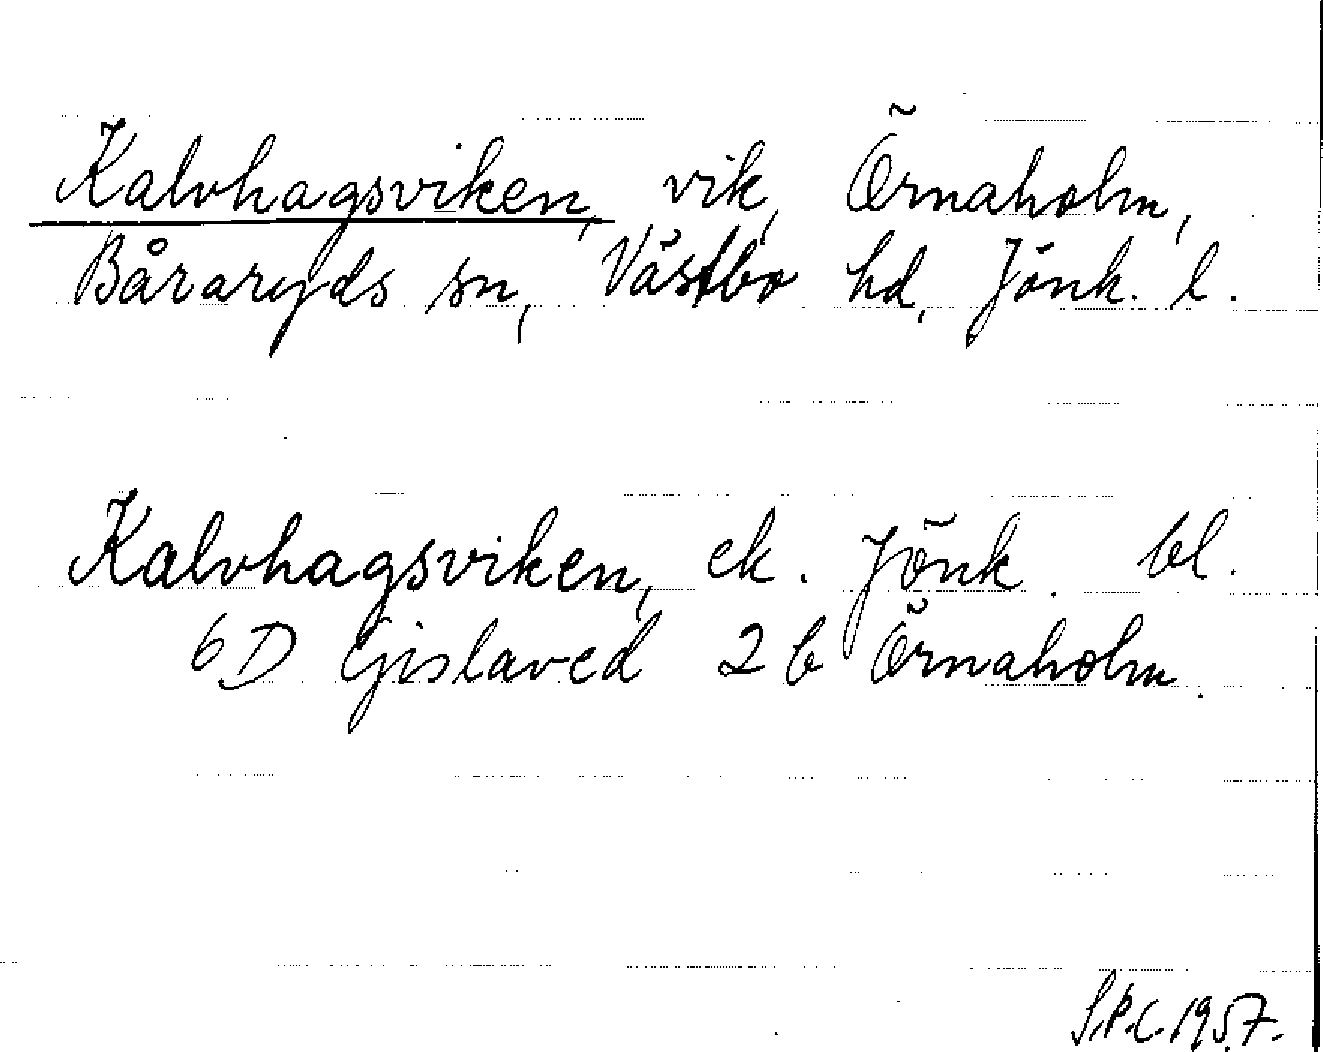 Kalvhagsviken, vik, Örnaholm,
Båraryds sn, Västbo hd, Jönk. l.
Kalvhagsviken, ek. Jönk. bl.
6 D Gislaved 2 b Örnaholm.
S.P.C. 1957.